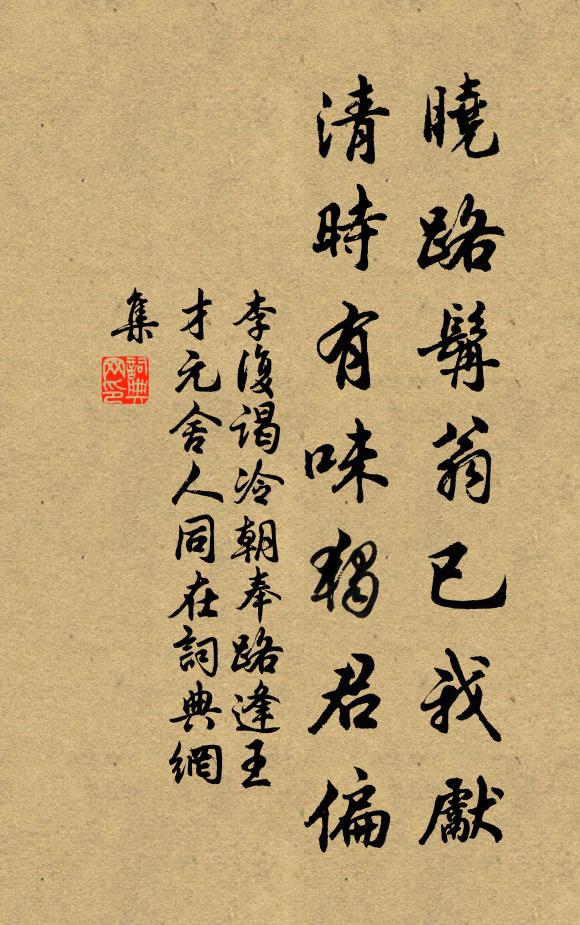 曉路髯翁已我獻
清時有味獨君偏
李復謁冷朝奉路逢王
才元舍人同在詞典網
集
詞典
网印